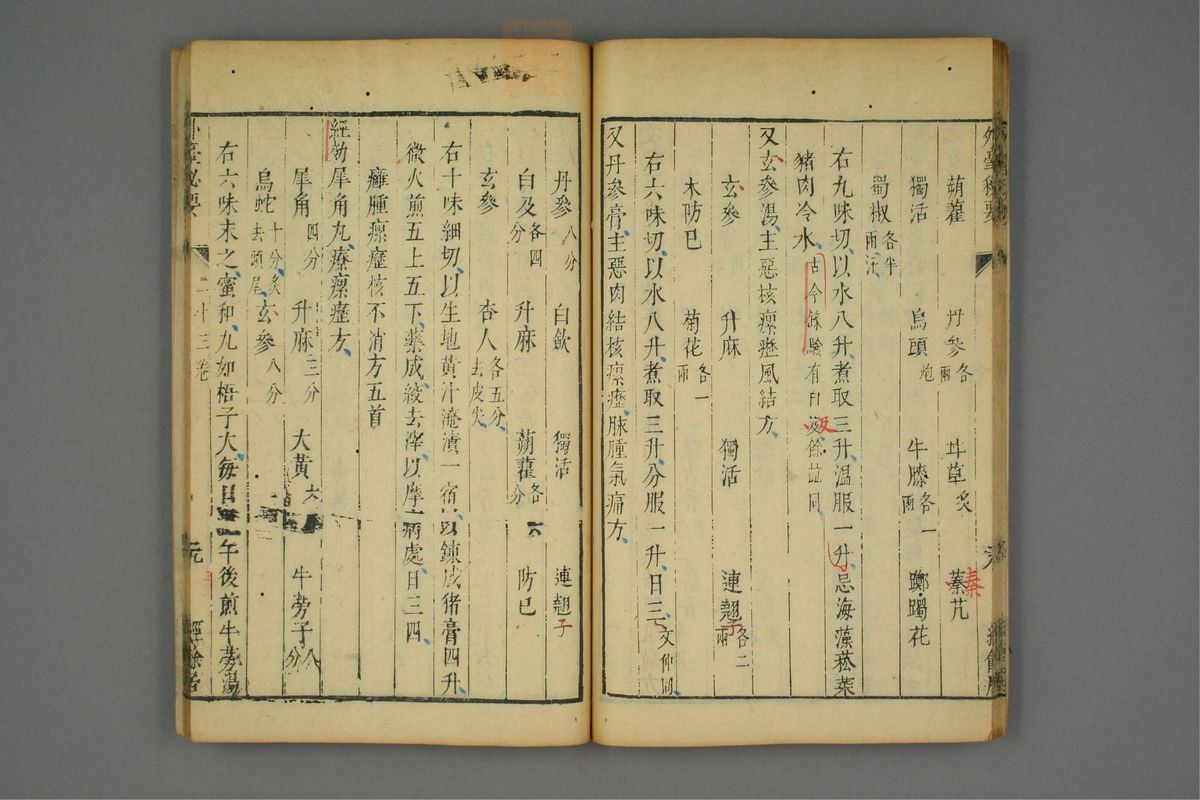 外臺秘要
蒴藋 丹參各二兩 甘草炙 蓁艽 秦
獨活 烏頭炮 牛膝各一兩 躑躅花
蜀椒各半兩汗
右九味切、以水八升煮取三升溫服一升、忌海藻菘菜
猪肉冷水、古今錄驗有白及餘並同
又玄參湯、主惡核瘰癧風結方、
玄參 升麻 獨活 連翹子各二兩
木防巳 菊花各一兩
右六味切、以水八升、煮取三升、分服一升、日三、文仲同、
又丹參膏、主惡肉結核瘰癧、脉腫氣痛方、
丹參八分 白歛 獨活 連翹子
白及各四分 升麻 蒴藋各六分 防巳
玄參 杏人各五分去皮尖、
右十味細切、以生地黃汁淹漬一宿、以鍊成猪膏四升、
微火煎五上五下、藥成、綾去滓、以摩病處、日三四、
癰腫瘰癧核不消方五首
經効犀角丸、療瘰癧方、
犀角四分 升麻三分 大黃六分 牛蒡子八分
烏蛇十分、炙去頭尾、 玄參八分
右六味末之、蜜和、丸如梧子大、每日 午後煎牛蒡湯
外臺秘要 二十三卷 經餘居